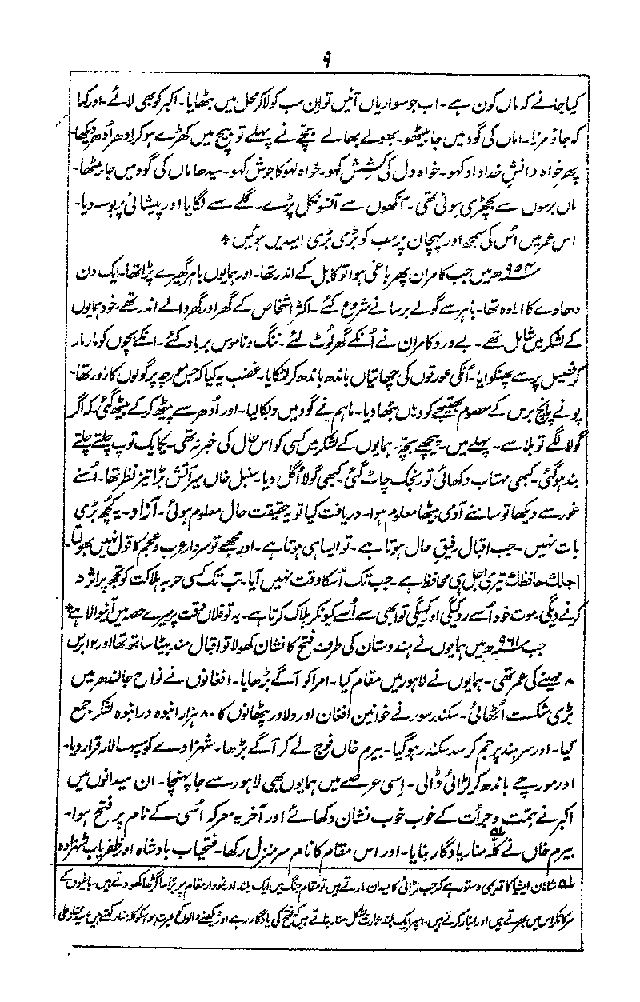 ۹
کیا جانے کہ ماں کون ہے۔ اب جو سواریاں آئیں تو ان سب کو لاکر محل میں بٹھایا۔ اکبر کو بھی لائے۔ اور کہا
کہ جاؤ مرزا۔ اماں کی گود میں جا بیٹھو۔ بھولے بھالے بچّے نے پہلے تو بیچ میں کھڑے ہو کر ادھر اُدھر دیکھا
پھر خواہ دانش خداداد کہو۔ خواہ دل کی کشش کہو۔ خواہ لہو کا جوش کہو۔ سیدھا ماں کی گود میں جا بیٹھا۔
ماں برسوں سے بچھڑی ہوئی تھی۔ آنکھوں سے آنسو نکل پڑے۔ گلے سے لگایا اور پیشانی پر بوسہ دیا۔
اس عمر میں اُس کی سمجھ اور پہچان پر سب کو بڑی بڑی امیدیں ہوئیں *
۹۵۴ھ میں جب کامران پھر باغی ہوا تو کابل کے اندر تھا۔ اور ہمایوں باہر گھیرے پڑا تھا۔ ایک دن
دھاوے کا ارادہ تھا۔ باہر سے گولے برسانے شروع کئے۔ اکثر اشخاص کے گھر اور گھر والے اندر تھے خود ہمایوں
کے لشکر میں شامل تھے۔ بے درد کامران نے اُنکے گھر لُوٹ لئے۔ ننگ و ناموس برباد کئے۔ انکے بچوں کو مار مار
کر فصیل پر سے پھنکوایا۔ اُنکی عورتوں کی چھاتیاں باندھ باندھ کر لٹکایا۔ غضب یہ کیا کہ جس مورچہ پر گولوں کا زور تھا۔
پونے پانچ برس کے معصوم بھتیجے کو وہاں بٹھا دیا۔ ماہم نے گود میں دبکا لیا۔ اور اُدھر سے پیٹھ کر کے بیٹھ گئی۔ کہ اگر
گولا لگے تو بلا سے۔ پہلے میں۔ پیچھے بچہ۔ ہمایوں کے لشکر میں کسی کو اس حال کی خبر نہ تھی۔ یکایک توپ چلتے چلتے
بند ہوگئی۔ کبھی مہتاب دکھائی تو رنجک چاٹ گئی کبھی گولا اُگل دیا سنبل خاں میر آتش بڑا تیز نظر تھا۔ اُسنے
غور سے دیکھا تو سامنے آدمی بیٹھا معلوم ہوا۔ دریافت کیا تو حقیقت حال معلوم ہوئی۔ آزاد۔ یہ کچھ بڑی
بات نہیں۔ جب اقبال رفیق حال ہوتا ہے۔ تو ایسا ہی ہوتا ہے۔ اور مجھے تو سردار عرب و عجم کا قول نہیں بھولتا۔
اجلک حافظک تیری اجل ہی محافظ ہے جب تک اُسکا وقت نہیں آیا۔ تب تک کسی حربہ ہلاکت کو تجھ پر اثر نہ
کرنے دیگی۔ موت خود اُسے روکیگی اور کہیگی تو ابھی سے اُسے کیونکر ہلاک کرتا ہے۔ یہ تو فلاں وقت پر میرے حصہ میں آنیوالا ہے *
جب ۹۶۱ھ میں ہمایوں نے ہندوستان کی طرف فتح کا نشان کھولا تو اقبال مند بیٹا ساتھ تھا اور ۱۲ برس
۸ مہینے کی عمر تھی۔ ہمایوں نے لاہور میں مقام کیا۔ امرا کو آگے بڑھایا۔ افغانوں نے نواح جالندھر میں
بڑی شکست اُٹھائی۔ سکندر سور نے خوانین افغان اور دلاور پٹھانوں کا ۸۰ ہزار انبوہ در انبوہ لشکر جمع
کیا۔ اور سرہند پر جم کر سدّ سکندر ہو گیا۔ بیرم خاں فوج لے کر آگے بڑھا۔ شہزادے کو سپہ سالار قرار دیا۔
اور مورچے باندھ کر لڑائی ڈالی۔ اسی عرصے میں ہمایوں بھی لاہور سے جا پہنچا۔ ان میدانوں میں
اکبر نے ہمّت و جرأت کے خوب خوب نشان دکھائے اور آخر یہ معرکہ اُسی کے نام پر فتح ہوا۔
بیرم خاں نے کلّہ منار یادگار بنایا۔ اور اس مقام کا نام سر منزل رکھا۔ فتحیاب بادشاہ اور ظفریاب شہزادہ
لہ شاہان ایشیا کا قدیمی دستور ہے کہ جب لڑائی کا میدان مارتے ہیں تو مقام جنگ میں ایک بلند اور نمودار مقام پر گڑھا کھودتے ہیں۔ باغیوں کے
سر کاٹ کر اس میں بھرتے ہیں اور اس پر ایک بلند عمارت بشکل منار بناتے ہیں کہ فتح کی یادگار رہے اور دیکھنے والوں کو عبرت ہو